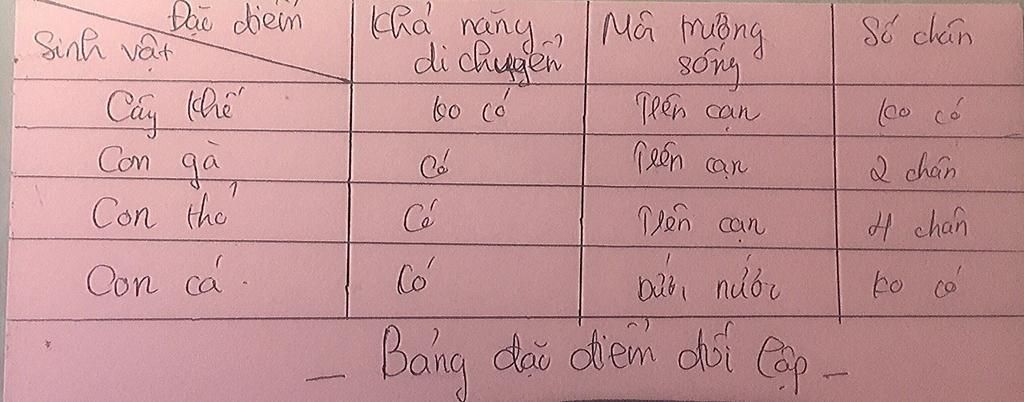 Đặc điểm
Sinh vật
Khả năng di chuyển
Môi trường sống
Số chân
Cây khế ko có Trên cạn ko có
Con gà Có Trên cạn 2 chân
Con thỏ Có Trên cạn 4 chân
Con cá Có Dưới nước ko có
- Bảng đặc điểm đối lập -